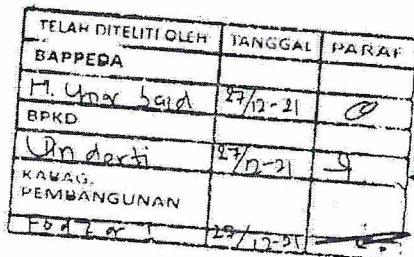 TELAH DITELITI OLEH TANGGAL PARAF
BAPPEDA
H. Umar Said 27/12-21
BPKD
27/12-21
KABAG.
PEMBANGUNAN